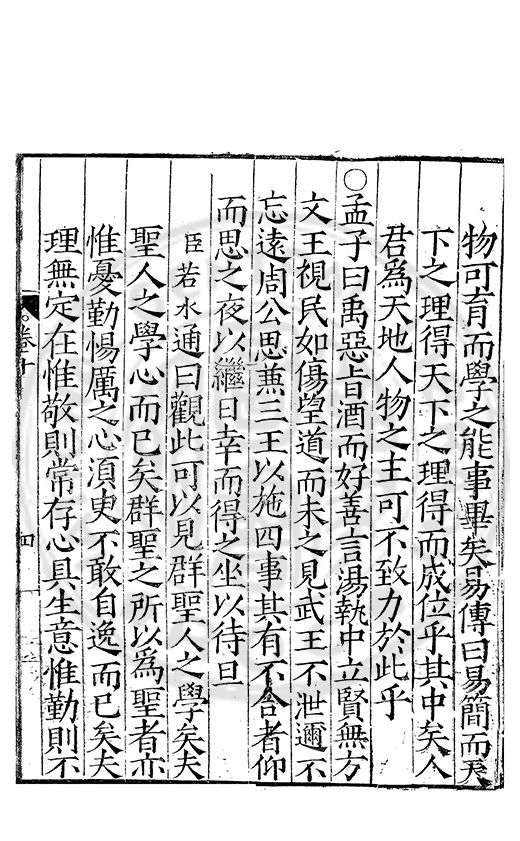 物可育而學之能事畢矣易傳曰易簡而天
下之理得天下之理得而成位乎其中矣人
君為天地人物之主可不致力於此乎
○孟子曰禹惡旨酒而好善言湯執中立賢無方
文王視民如傷望道而未之見武王不泄邇不
忘遠周公思兼三王以施四事其有不合者仰
而思之夜以繼日幸而得之坐以待旦
臣若水通曰觀此可以見群聖人之學矣夫
聖人之學心而已矣群聖之所以為聖者亦
惟憂勤惕厲之心湏臾不敢自逸而已矣夫
理無定在惟敬則常存心具生意惟勤則不
卷十
四